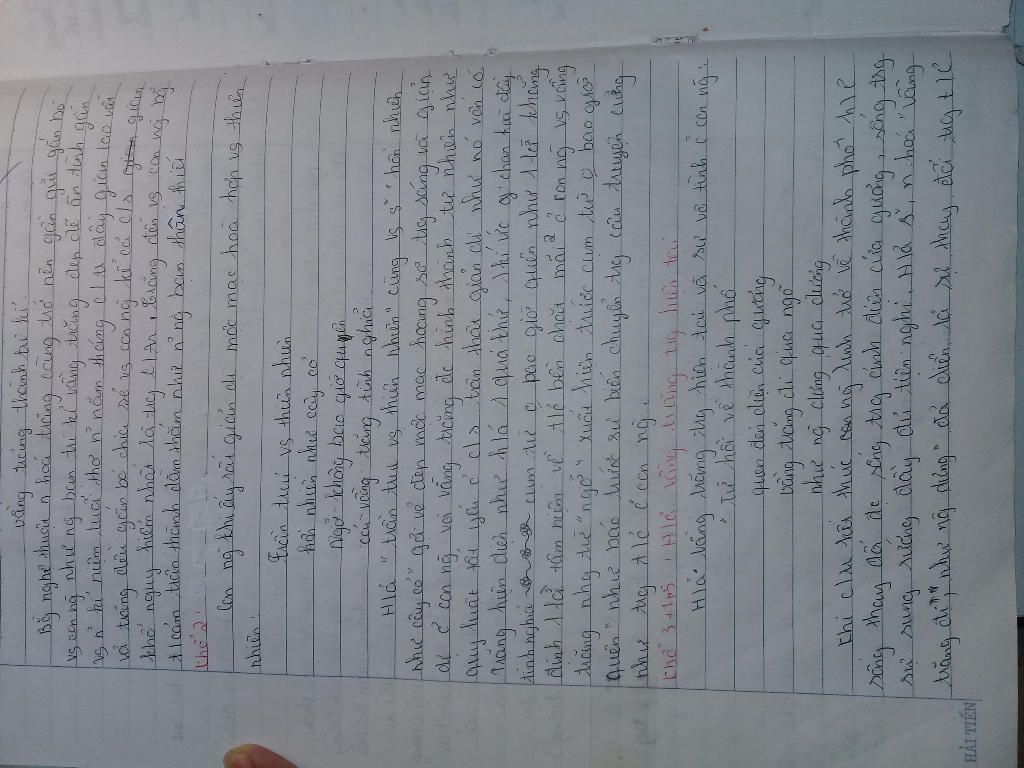 vầng trăng thành tri kỉ.
Bp nghệ thuật nhân hoá trăng cũng trở nên gần gũi gắn bó
vs con ng như ng bạn tri kỉ vầng trăng đẹp đẽ ân tình gắn
vs n kỉ niệm tuổi thơ n năm tháng c/tr đầy gian lao vất
vả trăng đều gắn bó chia sẻ vs con ng kể cả c/s gian
khổ nguy hiểm nhất là tg c/tr, trăng đến vs con ng bằng
t/cảm chân thành đằm thắm như n ng bạn thân thiết
khổ 2:
Con ng khi ấy sống giản dị mộc mạc hoà hợp vs thiên
nhiên:
Trần trụi vs thiên nhiên
hồn nhiên như cây cỏ
ngỡ không bao giờ quên
cái vầng trăng tình nghĩa
H/ả "trần trụi vs thiên nhiên" cùng vs s² hồn nhiên
như cây cỏ" gợi vẻ đẹp mộc mạc hoang sơ trg sáng và giản
dị c̉ con ng vai vầng trăng đc hình thành tự nhiên như
quy luật tất yếu c̉ c/s toàn hoà giản dị như nó vốn có
trăng hiện diện như h/ả s quá khứ, kí ức gợi chan hoà đầy
tình nghĩa cum từ o bao giờ quên như 1 lời khẳng
định 1 lờ tâm niệm về t/c bền chặt mãi² c̉ con ng vs vầng
trăng nhg từ "ngỡ" xuất hiện trước cum từ o bao giờ
quên" như báo trước sự biến chuyển trg câu chuyện cũng
như trg t/c c̉ con ng.
khổ 3+4+5 - H/ả vầng trăng trg hiện tại
H/ả vầng trăng trg hiện tại và sự vô tình c̉ con ng.
"Từ hồi về thành phố
quen đèn điện cửa gương
vầng trăng đi qua ngõ
như ng dưng qua đường
khi c/tr kết thúc con ng lính trở về thành phố h/c̉
sống thay đổi đc sống trg ánh điện cửa gương, sống trg
sự sung sướng đầy đủ tiện nghi. H/ả s², n hoá "vầng
trăng đi", như ng dưng" đã diễn tả sự thay đổi trg t/c̉
HẢI TIẾN